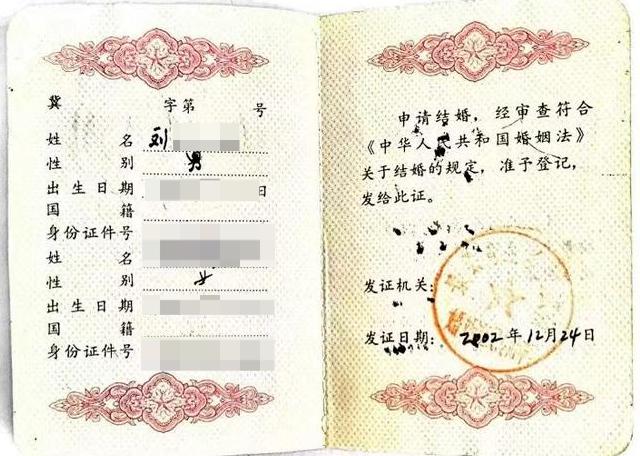 冀 字第 号
姓 名 刘
性 别 男
出生日期 日
国 籍
身份证件号
姓 名
性 别 女
出生日期
国 籍
身份证件号
申请结婚，经审查符合
《中华人民共和国婚姻法》
关于结婚的规定，准予登记，
发给此证。
发证机关：
发证日期：2002年12月24日